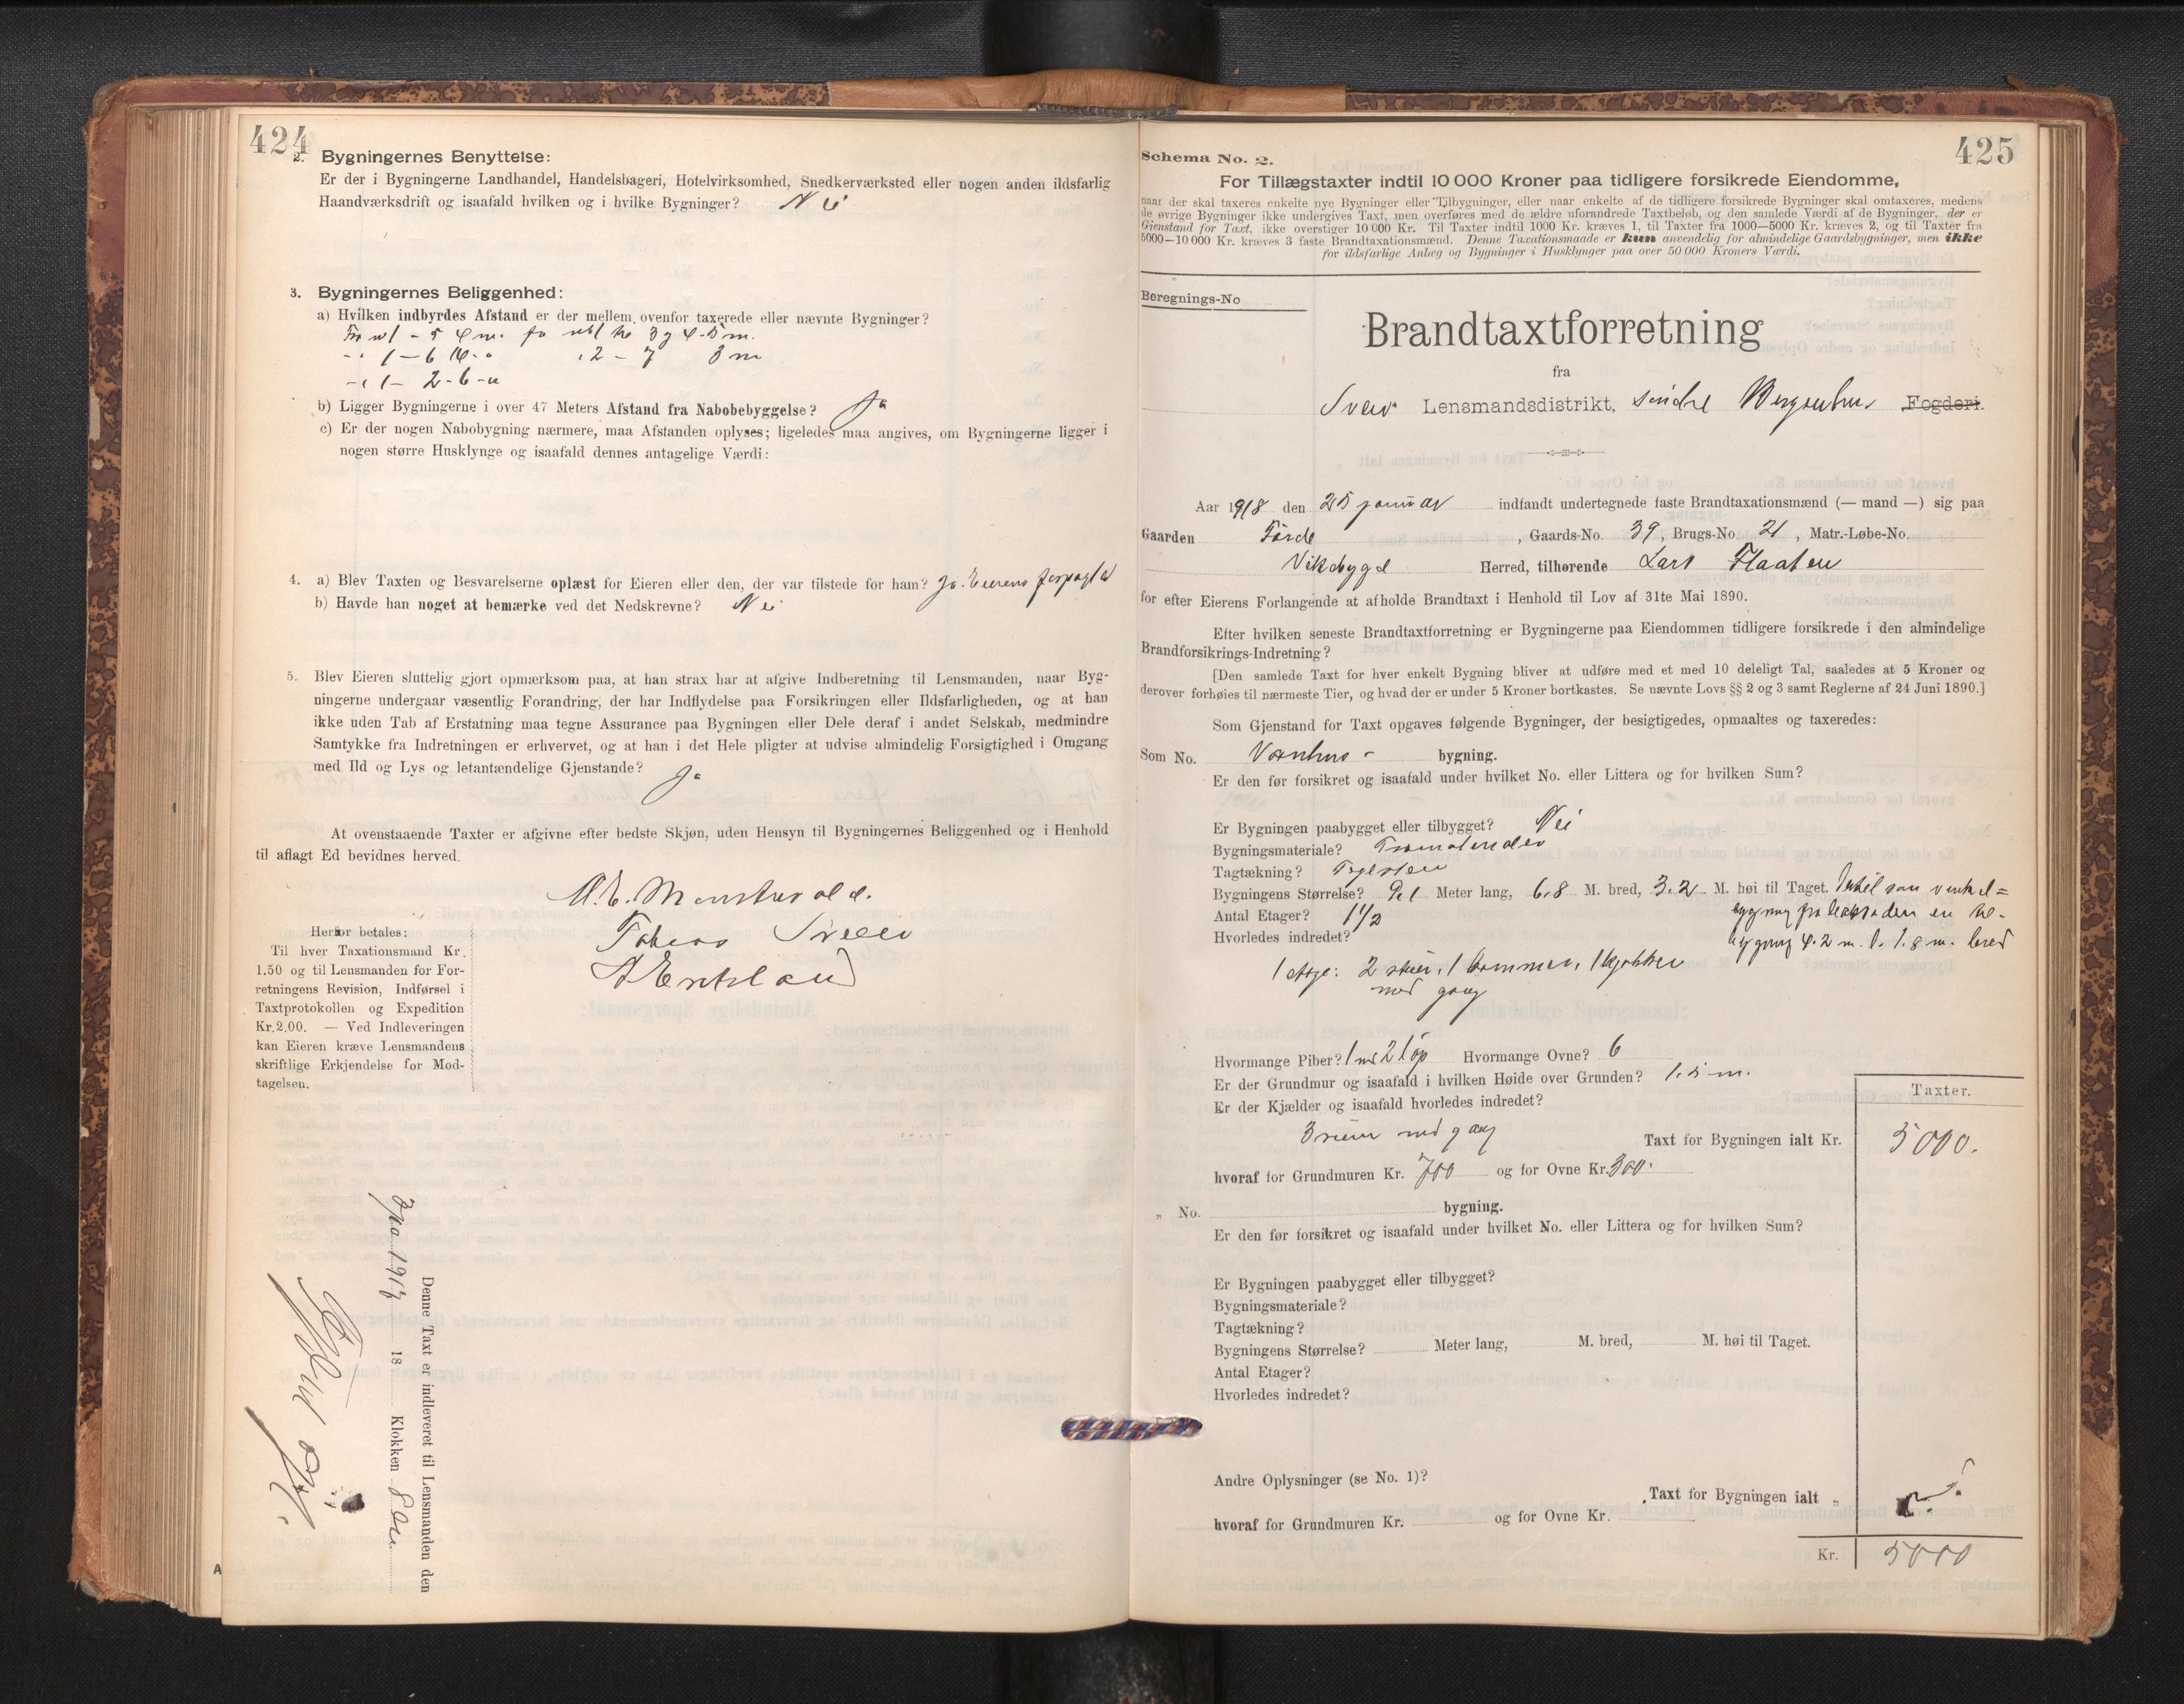 424
2. Bygningernes Benyttelse:
Er der i Bygningerne Landhandel, Handelsbageri, Hotelvirksomhed, Snedkerværksted eller nogen anden ildsfarlig
Haandværksdrift og isaafald hvilken og i hvilke Bygninger? Nei
3. Bygningernes Beliggenhed:
a) Hvilken indbyrdes Afstand er der mellem ovenfor taxerede eller nævnte Bygninger?
b) Ligger Bygningerne i over 47 Meters Afstand fra Nabobebyggelse? Ja
c) Er der nogen Nabobygning nærmere, maa Afstanden oplyses; ligeledes maa angives, om Bygningerne ligger i
nogen større Husklynge og isaafald dennes antagelige Værdi:
4. a) Blev Taxten og Besvarelserne oplæst for Eieren eller den, der var tilstede for ham? Ja. Eierens
b) Havde han noget at bemærke ved det Nedskrevne? Nei
5. Blev Eieren sluttelig gjort opmærksom paa, at han strax har at afgive Indberetning til Lensmanden, naar Byg-
ningerne undergaar væsentlig Forandring, der har Indflydelse paa Forsikringen eller Ildsfarligheden, og at han
ikke uden Tab af Erstatning maa tegne Assurance paa Bygningen eller Dele deraf i andet Selskab, medmindre
Samtykke fra Indretningen er erhvervet, og at han i det Hele pligter at udvise almindelig Forsigtighed i Omgang
med Ild og Lys og letantændelige Gjenstande? Ja
At ovenstaaende Taxter er afgivne efter bedste Skjøn, uden Hensyn til Bygningernes Beliggenhed og i Henhold
til aflagt Ed bevidnes herved.
Tobias Sveen
Herfor betales:
Til hver Taxationsmand Kr.
1.50 og til Lensmanden for For-
retningens Revision, Indførsel i
Taxtprotokollen og Expedition
Kr. 2.00. — Ved Indleveringen
kan Eieren kræve Lensmandens
skriftlige Erkjendelse for Mod-
tagelsen.
Denne Taxt er indleveret til Lensmanden den
18 Klokken
425
Schema No. 2.
For Tillægstaxter indtil 10 000 Kroner paa tidligere forsikrede Eiendomme,
naar der skal taxeres enkelte nye Bygninger eller Tilbygninger, eller naar enkelte af de tidligere forsikrede Bygninger skal omtaxeres, medens
de øvrige Bygninger ikke undergives Taxt, men overføres med de ældre uforandrede Taxtbeløb, og den samlede Værdi af de Bygninger, der er
Gjenstand for Taxt, ikke overstiger 10 000 Kr. Til Taxter indtil 1000 Kr. kræves 1, til Taxter fra 1000—5000 Kr. kræves 2, og til Taxter fra
5000—10 000 Kr. kræves 3 faste Brandtaxationsmænd. Denne Taxationsmaade er kun anvendelig for almindelige Gaardsbygninger, men ikke
for ildsfarlige Anlæg og Bygninger i Husklynger paa over 50 000 Kroners Værdi.
Beregnings-No
Brandtaxtforretning
fra
Sveio Lensmandsdistrikt, søndre Bergenhus Fogderi.
Aar 1918 den 25 januar indfandt undertegnede faste Brandtaxationsmænd (— mand —) sig paa
Gaarden Førde, Gaards-No. 39, Brugs-No. 21, Matr.-Løbe-No.
Vikebygd Herred, tilhørende Lars Flaaten
for efter Eierens Forlangende at afholde Brandtaxt i Henhold til Lov af 31te Mai 1890.
Efter hvilken seneste Brandtaxtforretning er Bygningerne paa Eiendommen tidligere forsikrede i den almindelige
Brandforsikrings-Indretning?
[Den samlede Taxt for hver enkelt Bygning bliver at udføre med et med 10 deleligt Tal, saaledes at 5 Kroner og
derover forhøies til nærmeste Tier, og hvad der er under 5 Kroner bortkastes. Se nævnte Lovs §§ 2 og 3 samt Reglerne af 24 Juni 1890.]
Som Gjenstand for Taxt opgaves følgende Bygninger, der besigtigedes, opmaaltes og taxeredes:
Som No. Vaanhus - bygning.
Er den før forsikret og isaafald under hvilket No. eller Littera og for hvilken Sum?
Er Bygningen paabygget eller tilbygget? Nei
Bygningsmateriale?
Tagtækning? Teglsten
Bygningens Størrelse? 9.1 Meter lang, 6.8 M. bred, 3.2 M. høi til Taget.
Antal Etager? 1 1/2
4.2 m. l. 1.8 m. bred
Hvorledes indredet?
1 etage: 2 stuer, 1 kammer, 1 kjøkken
med gang
Hvormange Piber? 1 md 2 løp Hvormange Ovne? 6
Er der Grundmur og isaafald i hvilken Høide over Grunden? 1.5 m.
Er der Kjælder og isaafald hvorledes indredet?
Taxter.
3 rum med gang Taxt for Bygningen ialt Kr. 5000.
hvoraf for Grundmuren Kr. 700 og for Ovne Kr. 300.
„ No. bygning.
Er den før forsikret og isaafald under hvilket No. eller Littera og for hvilken Sum?
Er Bygningen paabygget eller tilbygget?
Bygningsmateriale?
Tagtækning?
Bygningens Størrelse? Meter lang, M. bred, M. høi til Taget.
Antal Etager?
Hvorledes indredet?
Andre Oplysninger (se No. 1)?
Taxt for Bygningen ialt „
hvoraf for Grundmuren Kr. og for Ovne Kr.
Kr. 5000